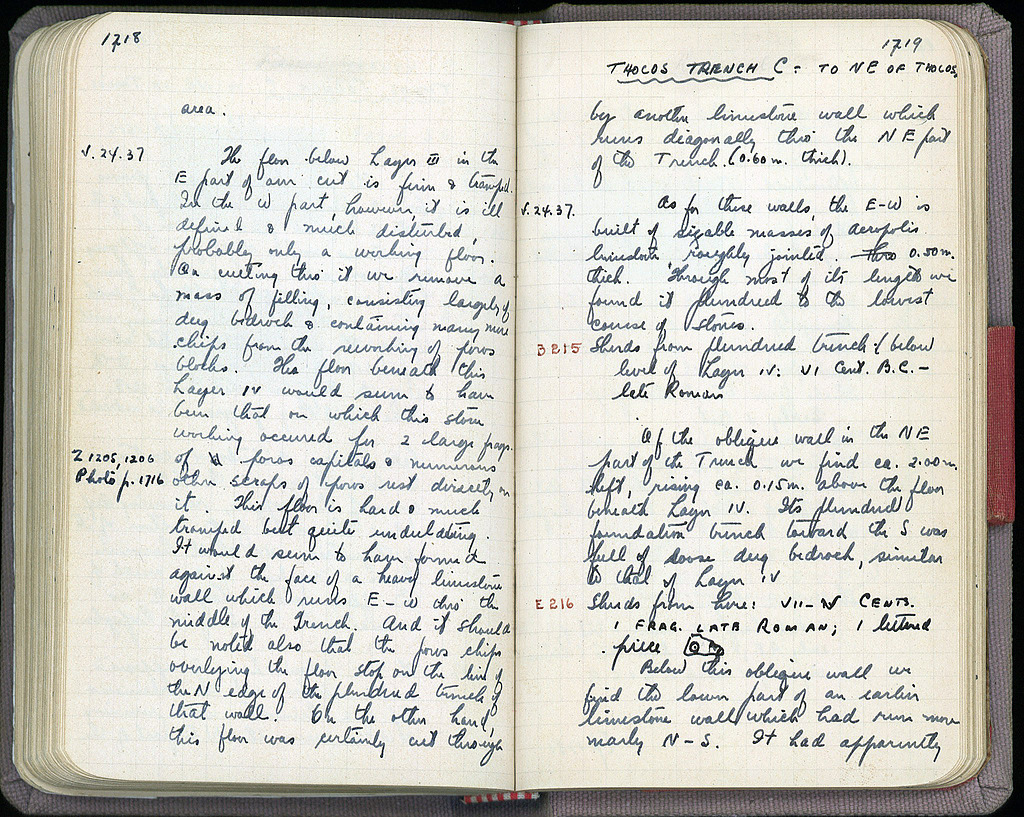 1718
area.
V.24.37
The floor below Layer III in the
E part of our cut is firm & tramped.
In the W part, however, it is ill
defined & much disturbed,
probably only a working floor.
On cutting thro it we remove a
mass of filling, consisting largely of
dug bedrock & containing many more
chips from the reworking of poros
blocks. The floor beneath this
Layer IV would seem to have
been that on which this stone
working occurred for 2 large frags.
Z 1205, 1206
of poros capitals & numerous
Photo p. 1716
other scraps of poros rest directly on
it. This floor is hard & much
tramped but quite undulating.
It would seem to have formed
against the face of a heavy limestone
wall which runs E-W thro the
middle of the Trench. And it should
be noted also that the poros chips
overlying the floor stop on the line of
the N edge of the plundered trench of
that wall. On the other hand,
this floor was certainly cut through
1719
THOLOS TRENCH C: TO NE OF THOLOS
by another limestone wall which
runs diagonally thro the NE part
of the Trench. (0.60 m. thick).
V.24.37.
As for these walls, the E-W is
built of sizable masses of acropolis
limestone roughly jointed. Thro 0.50 m.
thick. Through most of its length we
found it plundered to the lowest
course of stones.
B 215
Sherds from plundered trench & below
level of Layer IV: VI Cent. B.C. -
late Roman
Of the oblique wall in the NE
part of the Trench we find ca. 2.00 m.
left, rising ca. 0.15 m. above the floor
beneath Layer IV. Its plundered
foundation trench toward the S was
full of loose dug bedrock, similar
to that of Layer IV
E 216
Sherds from here: VII-IV CENTS.
1 FRAG. LATE ROMAN; 1 lettered
piece
Below this oblique wall we
find the lower part of an earlier
limestone wall which had run more
nearly N-S. It had apparently